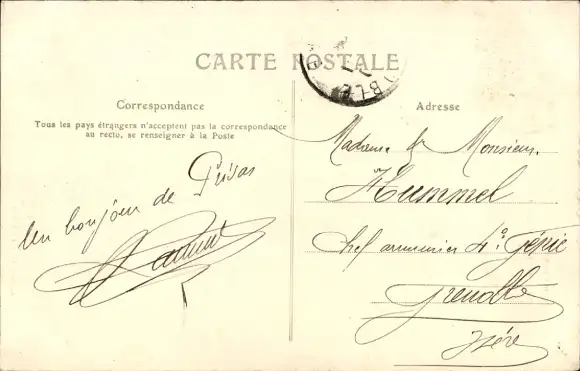 CARTE POSTALE
OBLE
Correspondance
Tous les pays étrangers n'acceptent pas la correspondance
au recto, se renseigner à la Poste
Un bonjour de Privas
Adresse
Madame & Monsieur
Hummel
chef armurier 4e Génie
Grenoble
Isère